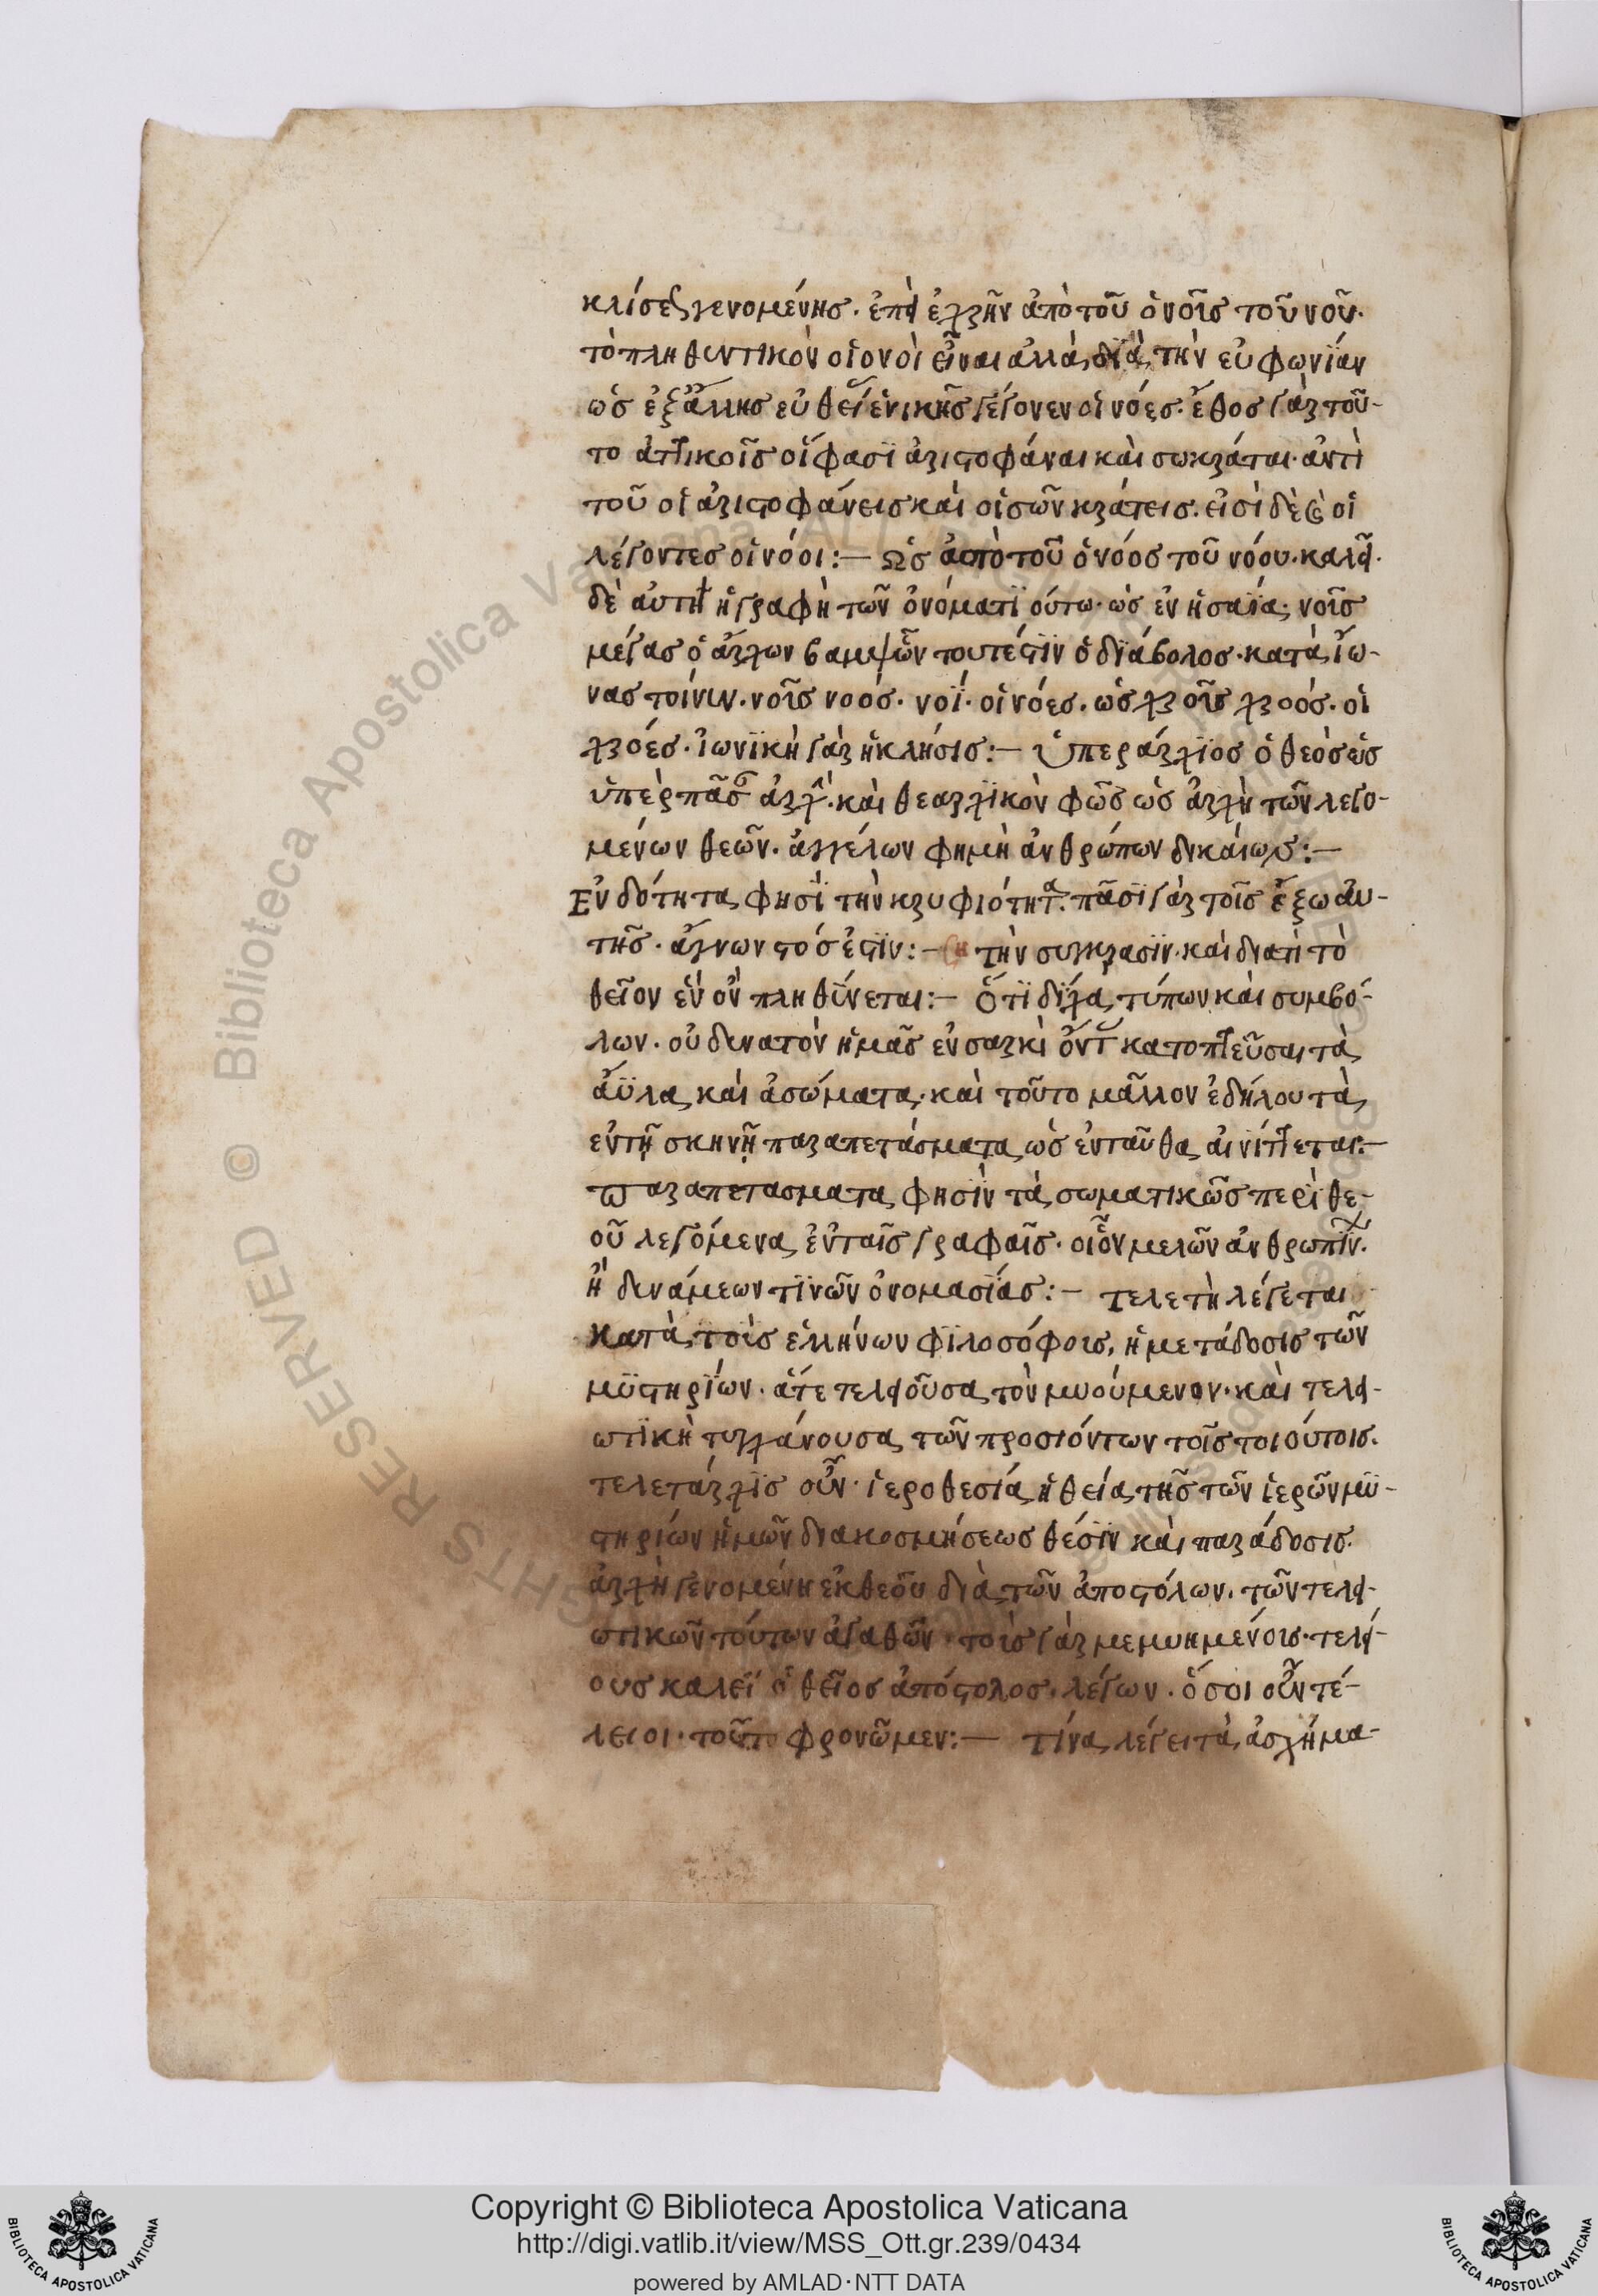 κλίσεως γενομένης· ἐπεὶ ἐχρῆν ἀπὸ τοῦ ὁ νοῦς τοῦ νοῦ·
τὸ πληθυντικὸν οἷον οἱ εἶναι ἀλλὰ διὰ τὴν εὐφωνίαν
ὡς ἐξ ἄλλης εὐθείας ἑνικῆς γέγονεν οἱ νόες· ἔθος γὰρ τοῦ-
το ἀττικοῖς οἵ φασὶ ἀριστοφάναι καὶ σωκράται· ἀντὶ
τοῦ οἱ ἀριστοφάνεις καὶ οἱ σωκράτεις· εἰσὶ δὲ καὶ οἱ
λέγοντες οἱ νόοι:— Ὡς ἀπὸ τοῦ ὁ νόος τοῦ νόου· καλεῖ
δὲ αὐτῆ ἡ γραφὴ τῶν ὀνόματι οὕτω· ὡς ἐν ἡσαΐα· νοῦς
μέγας ὁ ἄρχων βαμψῶν τουτέστιν ὁ διάβολος· κατὰ ἴω-
νας τοίνυν· νοῦς νοός· νοΐ· οἱ νόες· ὡς χροῦς χροός· οἱ
χρόες· ἰωνικὴ γὰρ ἡ κλήσις:— Ὑπεράρχιος ὁ θεὸς ὡς
ὑπὲρ πᾶσαν ἀρχήν· καὶ θεαρχικὸν φῶς ὡς ἀρχὴ τῶν λεγο-
μένων θεῶν· ἀγγέλων φημὴ ἀνθρώπων δικαίων:—
Ἑνδότητα φησὶ τὴν κρυφιότητα· πᾶσι γὰρ τοῖς ἔξω αὐ-
τῆς· ἄγνωστός ἐστιν:— ἢ τὴν σύγκρασιν· καὶ διατί τὸ
θεῖον ἓν ὂν πληθύνεται:— Ὅτι δίχα τύπων καὶ συμβό-
λων· οὐ δυνατὸν ἡμᾶς ἐν σαρκὶ ὄντας κατοπτεῦσαι τὰ
ἄϋλα καὶ ἀσώματα· καὶ τοῦτο μᾶλλον ἐδήλου τὰ
ἐν τῆ σκηνῆ παραπετάσματα ὡς ἐνταῦθα αἰνίττεται:—
Παραπετασματα φησὶν τὰ σωματικῶς περὶ θε-
οῦ λεγόμενα ἐν ταῖς γραφαῖς· οἷον μελῶν ἀνθρωπίνων·
ἢ δυνάμεων τινῶν ὀνομασίας:— Τελετὴ λέγεται
κατὰ τοὺς ἑλλήνων φιλοσόφους, ἡ μετάδοσις τῶν
μυστηρίων· ἅτε τελειοῦσα τὸν μυούμενον· καὶ τελει-
ωτικὴ τυγχάνουσα τῶν προσιόντων τοῖς τοιούτοις·
τελετάρχις οὖν· ἱεροθεσία ἡ θεία τῆς τῶν ἱερῶν μυ-
στηρίων ἡμῶν διακοσμήσεως θέσιν καὶ παράδοσις·
ἀρχὴ γενομένη ἐκ θεοῦ διὰ τῶν ἀποστόλων· τῶν τελει-
ωτικῶν τούτων ἀγαθῶν· τοὺς γὰρ μεμυημένους· τελεί-
ους καλεῖ ὁ θεῖος ἀπόστολος· λέγων· ὅσοι οὖν τέ-
λειοι· τοῦτο φρονῶμεν:— Τίνα λέγει τὰ ἀσχήμα-
Copyright © Biblioteca Apostolica Vaticana
http://digi.vatlib.it/view/MSS_Ott.gr.239/0434
powered by AMLAD·NTT DATA